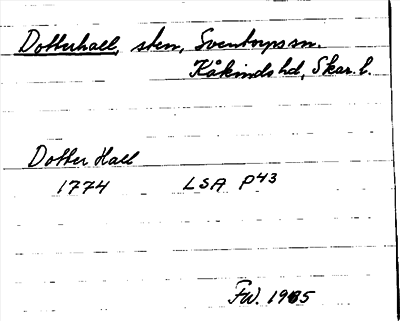 Dotterhall, sten, Sventorps sn.
Kåkinds hd, Skar. l.
Dotter Hall
1774 LSA P43
FW. 1985